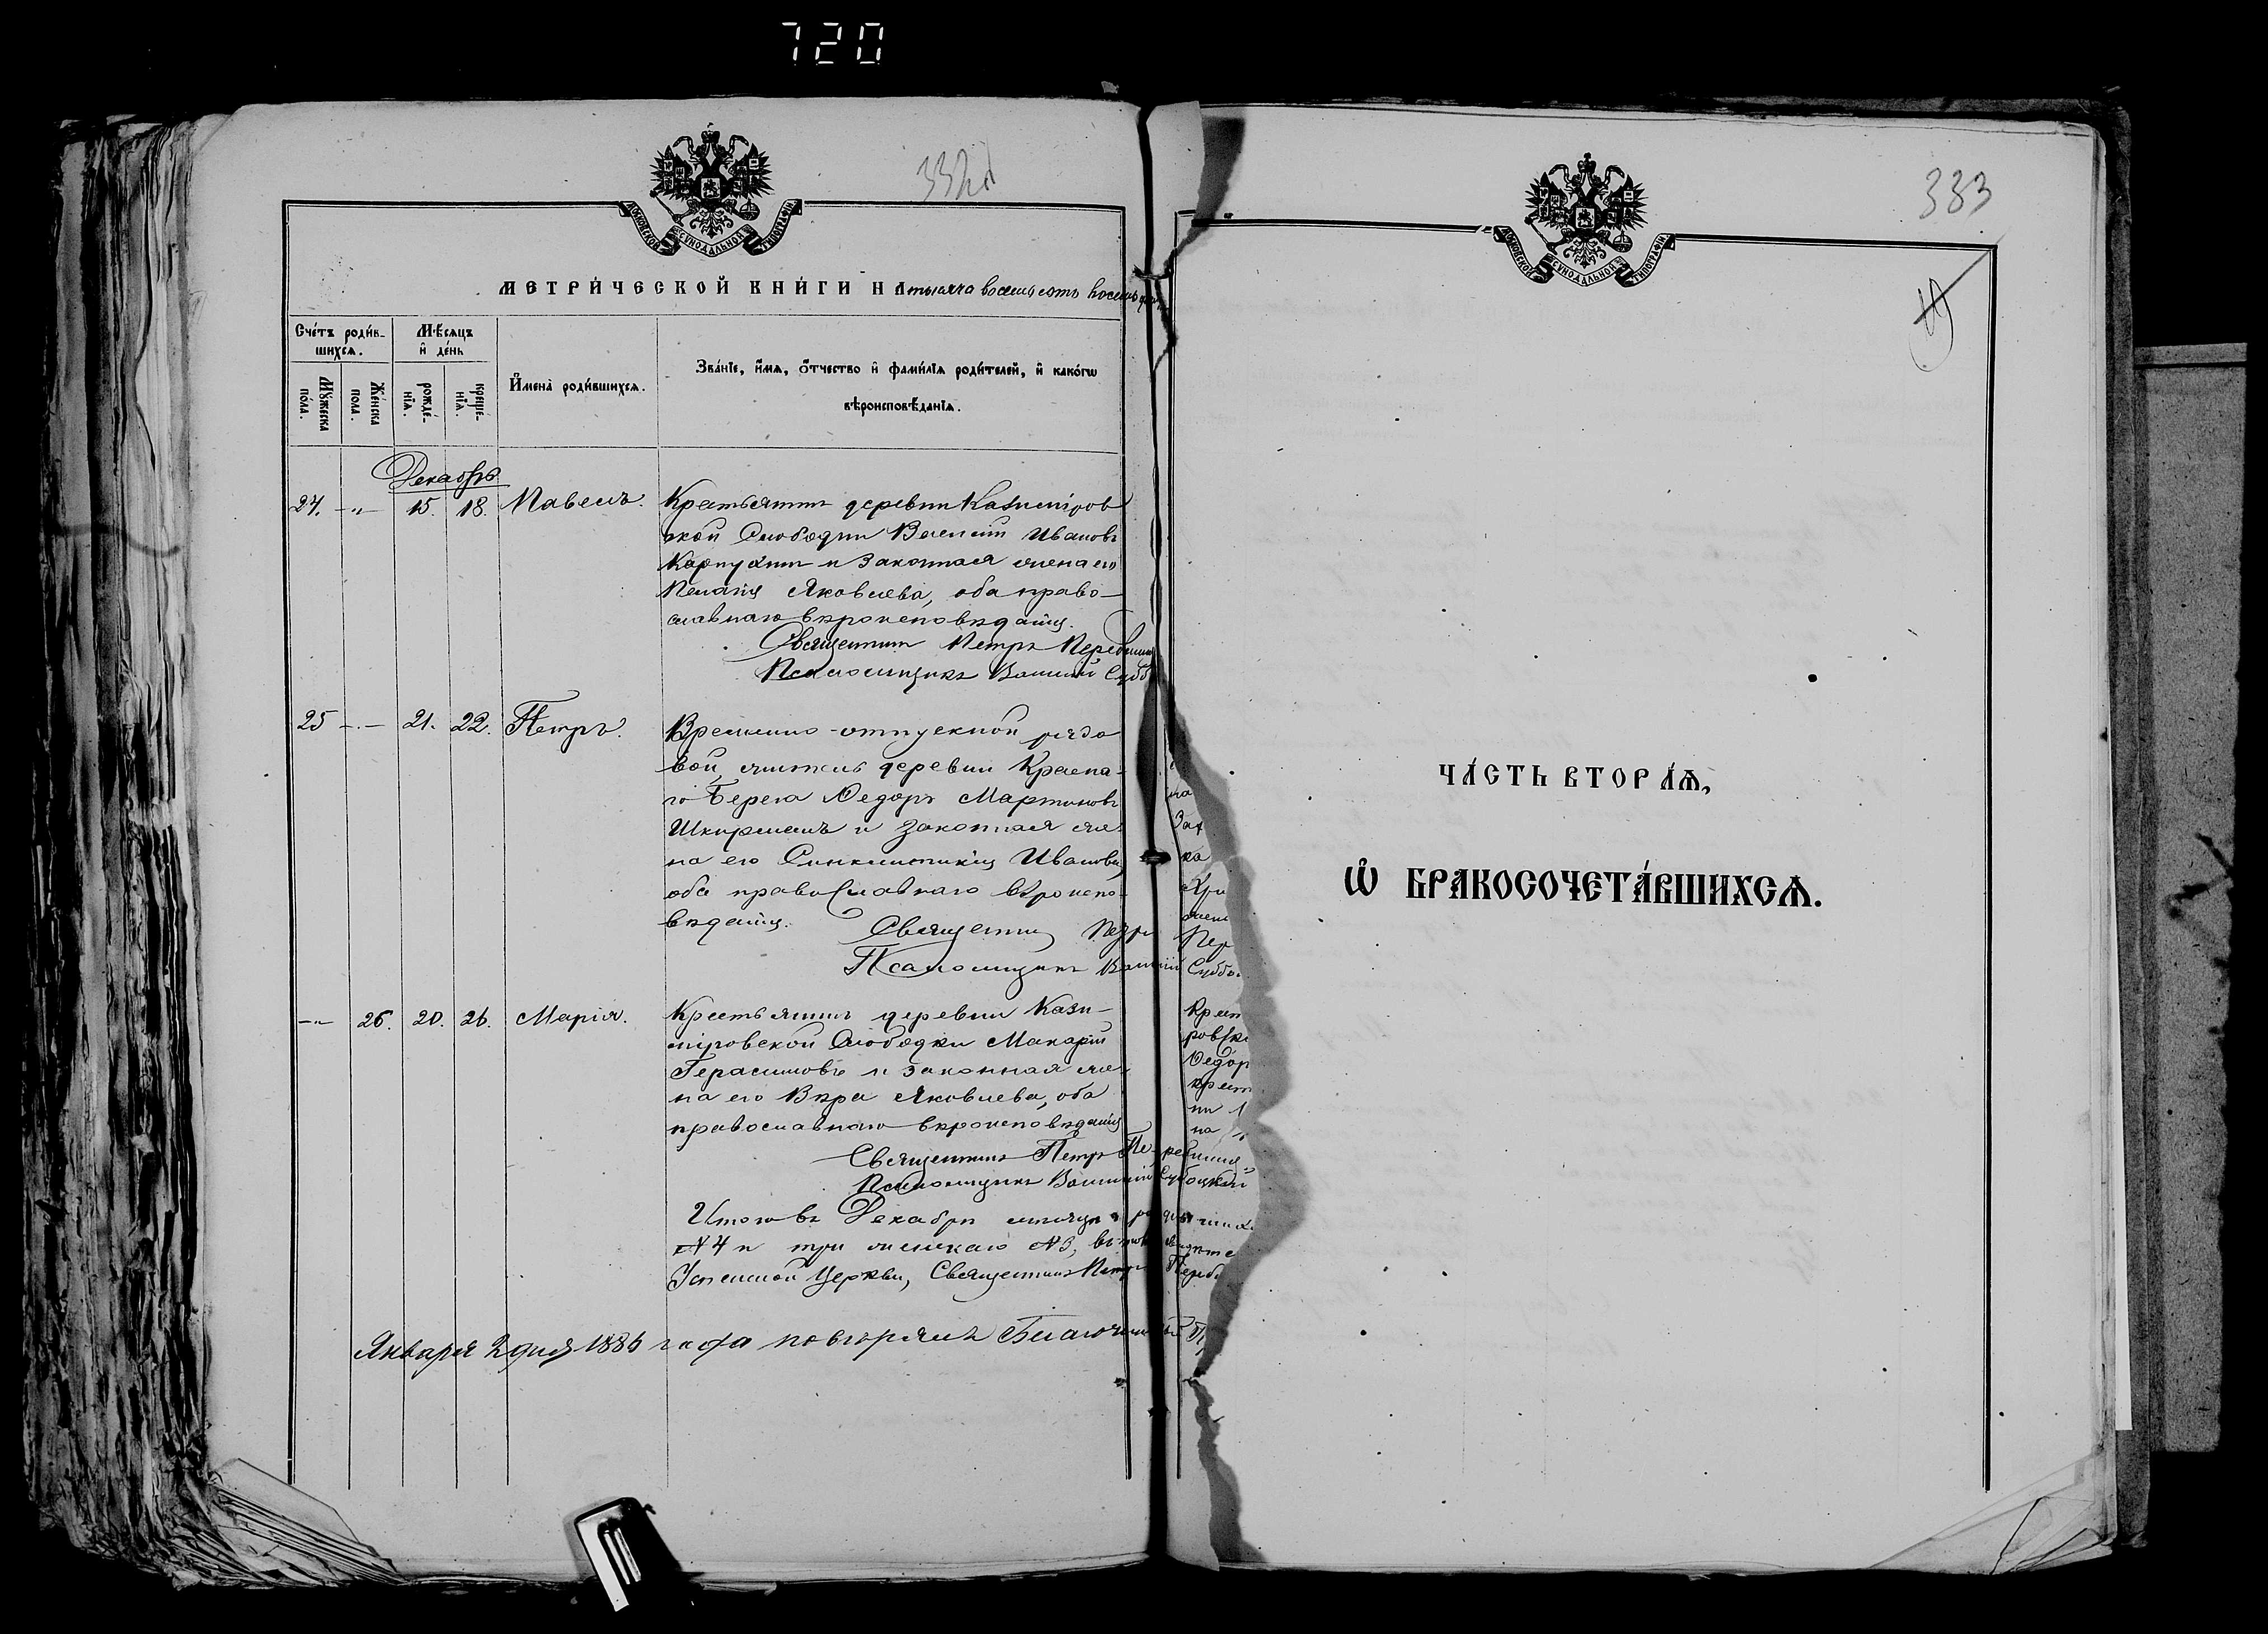 720
332
МОСКОВСКОЙ СѴНОДАЛЬНОЙ ТИПОГРАФІИ
МЕТРИ́ЧЕСКОЙ КНИ́ГИ НА тысяча восемьсотъ восемь
Сче́тъ роди́в-
шихся.
Мѣ́сяцъ
и҆ де́нь
Мꙋ́жеска
по́ла.
Же́нска
пола.
рожде́-
нїѧ.
креще́-
нїѧ.
И҆мена̀ роди́вшихсѧ.
Зва́нїе, и҆́мѧ, ѻ҆́тчество и҆ фами́лїѧ роди́телей, и҆ како́гѡ
вѣроисповѣ́данїѧ.
Декабрь
24. -"- 15. 18. Павелъ.
Крестьянинъ деревни Казимiров
ской Слободки Василiй Ивановъ
и законная жена его
Пелагiя Яковлева, оба право-
славнаго вѣроисповѣданiя.
Священникъ Петръ
Псаломщикъ
25 -"- 21. 22. Петръ.
Временно-отпускной рядо
вой, житель деревни Красна-
го Берега Ѳедоръ Мартиновъ
и законная же-
на его Синклитикiя Иванова,
оба православнаго вѣроиспо-
вѣданiя.
Священникъ Петръ
Псаломщикъ
-"- 26. 20. 26. Марiя.
Крестьянинъ деревни Кази-
мiровской Слободки Макарiй
Герасимовъ и законная же-
на его Вѣра Яковлева, оба
православнаго вѣроисповѣданiя
Священникъ Петръ
Псаломщикъ
Итого въ Декабрѣ
три женскаго №3,
Успенской Церкви, Священникъ Петръ
Января 2 дня 1886 года повѣрялъ Благочинный
333
МОСКОВСКОЙ СѴНОДАЛЬНОЙ ТИПОГРАФІИ
ЧА́СТЬ ВТОРА́Ѧ,
Ѽ БРАКОСОЧЕТА́ВШИХСѦ.